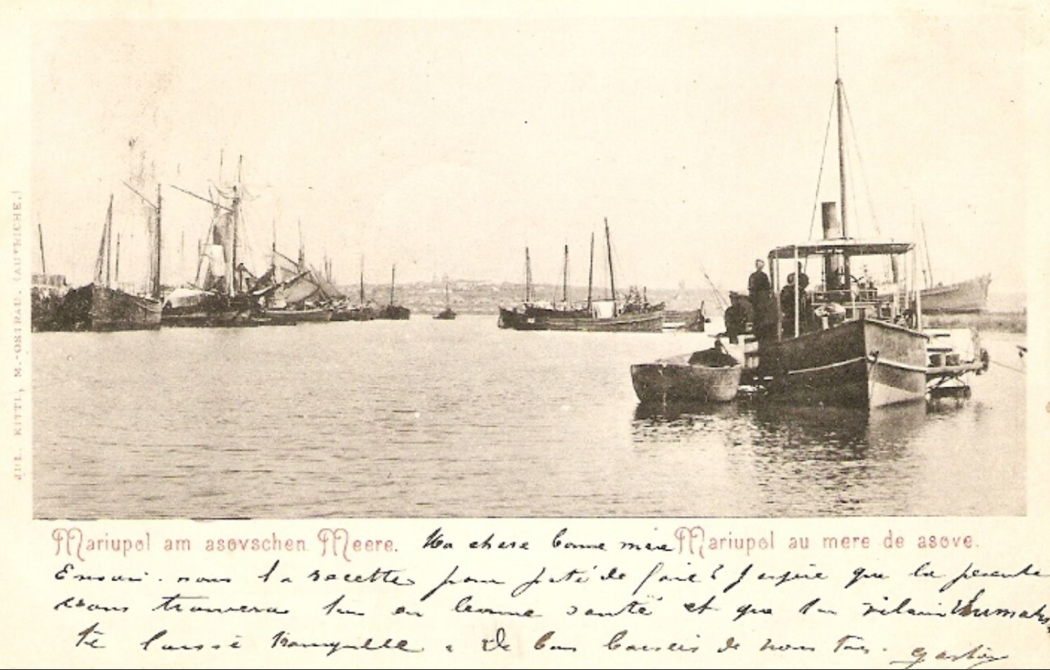 JUL. KITTL, M.-OSTRAU. (AUTRICHE.)
Mariupol am asovschen Meere. Ma chere bonne mère Mariupol au mere de asove.
Envoi-nous la recette pour paté de foie? J espère que la présente
vous trouvera en bonne santé et que vilain
te laisse tranquille. De bons baisers de nous tous. Gaston